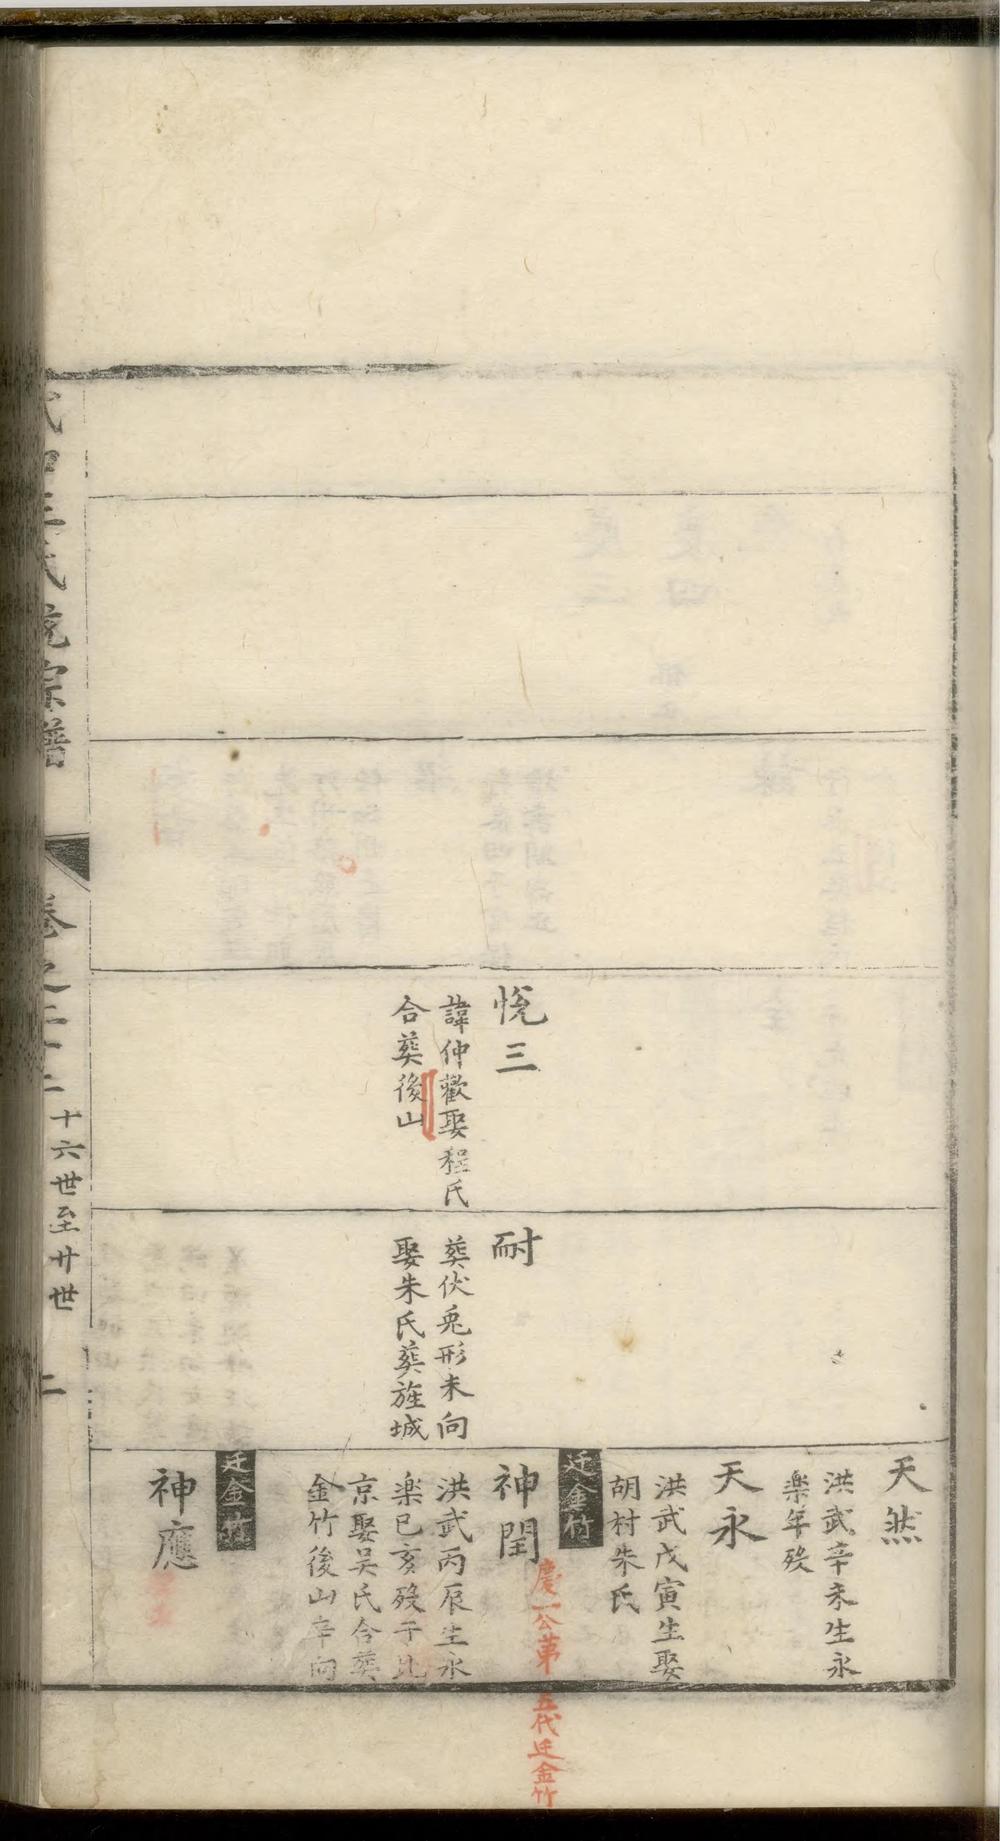 悅三
諱仲歡娶程氏
合葬後山
耐
葬伏兎形未向
娶朱氏葬旌城
天然
洪武辛未生永
楽年歿
天永
洪武戊寅生娶
胡村朱氏
迁金竹
神閏
慶一公苐五代迁金竹
洪武丙辰生永
楽已亥歿于北
京娶吴氏合葬
金竹後山辛向
迁金竹
神應
氏統宗譜
卷之二十二
十六世至廾世
二